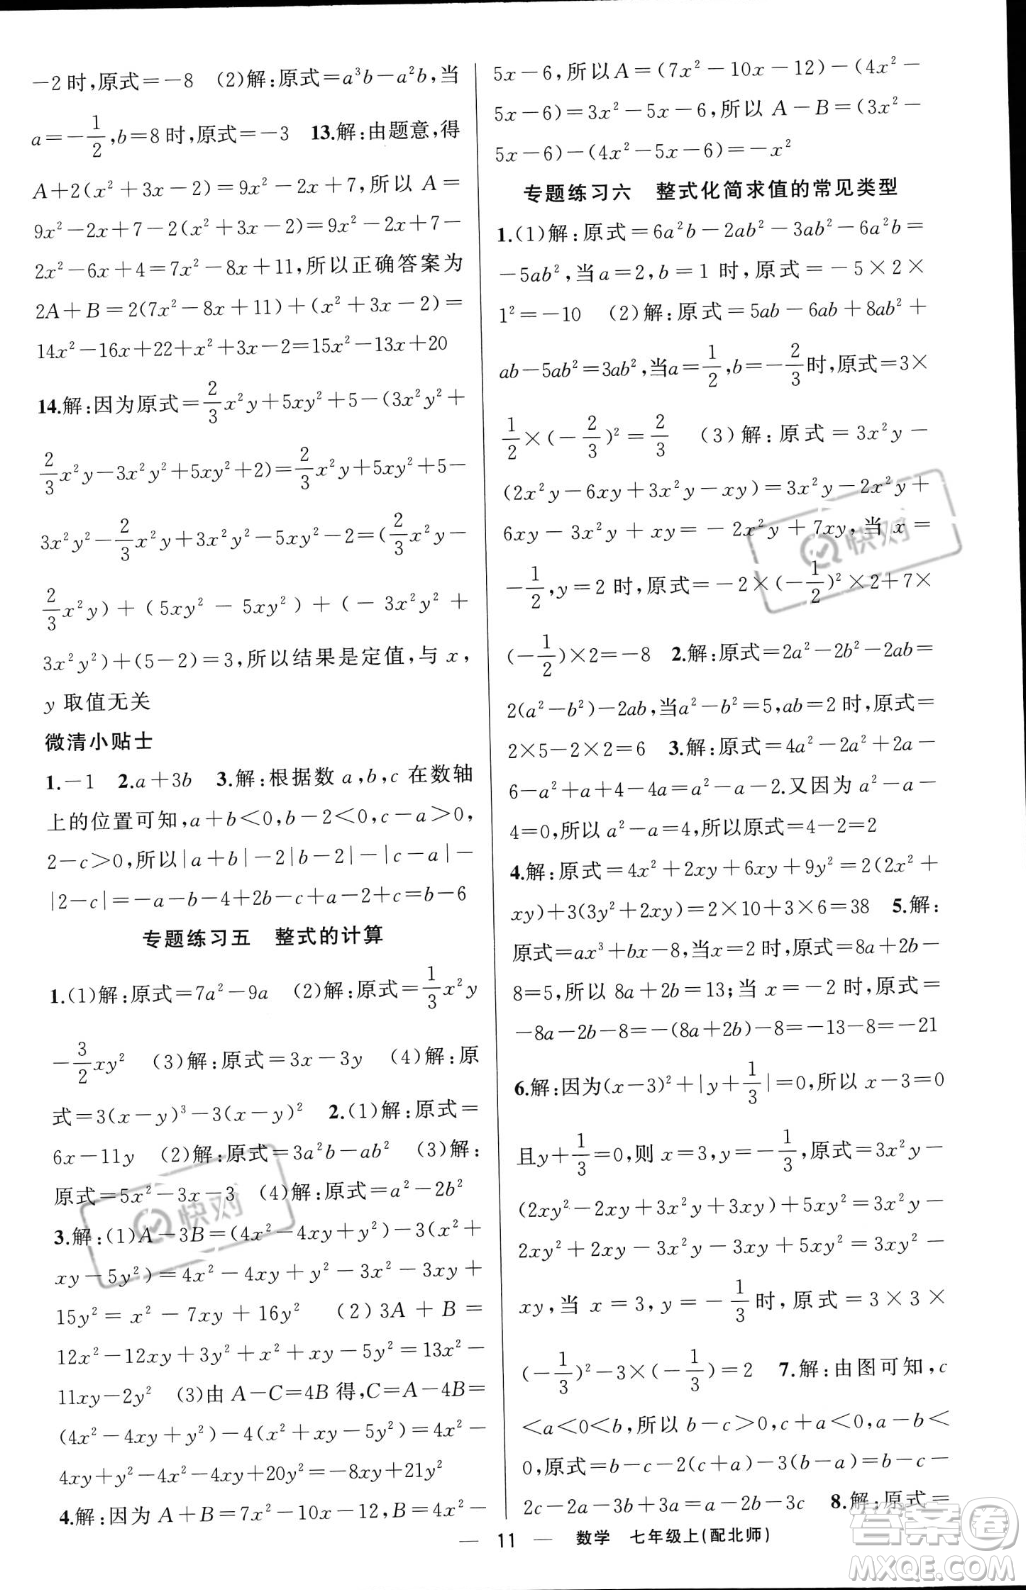 -2时,原式=-8 (2)解:原式=a³b-a²b,当
a=-1/2,b=8时,原式=-3 13.解:由题意,得
A+2(x²+3x-2)=9x²-2x+7,所以A=
9x²-2x+7-2(x²+3x-2)=9x²-2x+7-
2x²-6x+4=7x²-8x+11,所以正确答案为
2A+B=2(7x²-8x+11)+(x²+3x-2)=
14x²-16x+22+x²+3x-2=15x²-13x+20
14.解:因为原式=2/3x²y+5xy²+5-(3x²y²+
2/3x²y-3x²y²+5xy²+2)=2/3x²y+5xy²+5-
3x²y²-2/3x²y+3x²y²-5xy²-2=(2/3x²y-
2/3x²y)+(5xy²-5xy²)+(-3x²y²+
3x²y²)+(5-2)=3,所以结果是定值,与x,
y取值无关
微清小贴士
1.-1 2.a+3b 3.解:根据数a,b,c在数轴
上的位置可知,a+b<0,b-2<0,c-a>0,
2-c>0,所以|a+b|-2|b-2|-|c-a|-
|2-c|=-a-b-4+2b-c+a-2+c=b-6
专题练习五 整式的计算
1.(1)解:原式=7a²-9a (2)解:原式=1/3x²y
-3/2xy² (3)解:原式=3x-3y (4)解:原
式=3(x-y)³-3(x-y)² 2.(1)解:原式=
6x-11y (2)解:原式=3a²b-ab² (3)解:
原式=5x²-3x-3 (4)解:原式=a²-2b²
3.解:(1)A-3B=(4x²-4xy+y²)-3(x²+
xy-5y²)=4x²-4xy+y²-3x²-3xy+
15y²=x²-7xy+16y² (2)3A+B=
12x²-12xy+3y²+x²+xy-5y²=13x²-
11xy-2y² (3)由A-C=4B得,C=A-4B=
(4x²-4xy+y²)-4(x²+xy-5y²)=4x²-
4xy+y²-4x²-4xy+20y²=-8xy+21y²
4.解:因为A+B=7x²-10x-12,B=4x²-
5x-6,所以A=(7x²-10x-12)-(4x²-
5x-6)=3x²-5x-6,所以A-B=(3x²-
5x-6)-(4x²-5x-6)=-x²
专题练习六 整式化简求值的常见类型
1.(1)解:原式=6a²b-2ab²-3ab²-6a²b=
-5ab²,当a=2,b=1时,原式=-5×2×
1²=-10 (2)解:原式=5ab-6ab+8ab²+
ab-5ab²=3ab²,当a=1/2,b=-2/3时,原式=3×
1/2×(-2/3)²=2/3 (3)解:原式=3x²y-
(2x²y-6xy+3x²y-xy)=3x²y-2x²y+
6xy-3x²y+xy=-2x²y+7xy,当x=
-1/2,y=2时,原式=-2×(-1/2)²×2+7×
(-1/2)×2=-8 2.解:原式=2a²-2b²-2ab=
2(a²-b²)-2ab,当a²-b²=5,ab=2时,原式=
2×5-2×2=6 3.解:原式=4a²-2a²+2a-
6-a²+a+4-4a=a²-a-2.又因为a²-a-
4=0,所以a²-a=4,所以原式=4-2=2
4.解:原式=4x²+2xy+6xy+9y²=2(2x²+
xy)+3(3y²+2xy)=2×10+3×6=38 5.解:
原式=ax³+bx-8,当x=2时,原式=8a+2b-
8=5,所以8a+2b=13;当x=-2时,原式=
-8a-2b-8=-(8a+2b)-8=-13-8=-21
6.解:因为(x-3)²+|y+1/3|=0,所以x-3=0
且y+1/3=0,则x=3,y=-1/3,原式=3x²y-
(2xy²-2xy+3x²y+xy)+5xy²=3x²y-
2xy²+2xy-3x²y-xy+5xy²=3xy²+
xy,当x=3,y=-1/3时,原式=3×3×
(-1/3)²-3×(-1/3)=2 7.解:由图可知,c
<a<0<b,所以b-c>0,c+a<0,a-b<
0,原式=b-c-2(-c-a)-3(b-a)=b-c-
2c-2a-3b+3a=a-2b-3c 8.解:原式=
— 11 — 数学 七年级上(配北师)
快对
快对
答案圈
MXQE.COM